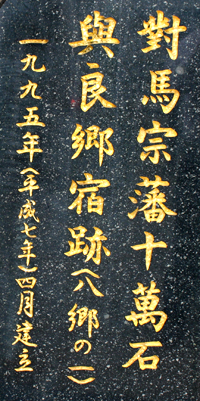 對馬宗藩十萬石
與良郷宿跡(八郷の一)
一九九五年(平成七年)四月建立